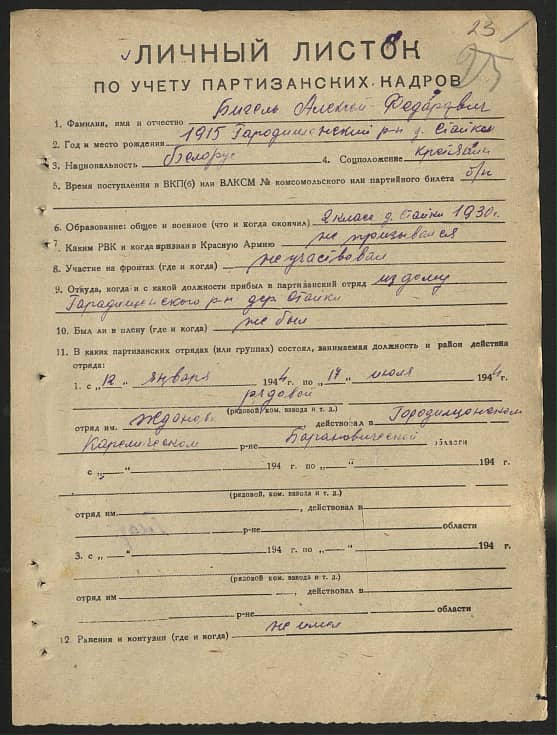 23
25
ЛИЧНЫЙ ЛИСТОК
ПО УЧЕТУ ПАРТИЗАНСКИХ КАДРОВ
1. Фамилия, имя и отчество Бигель Алексей Федарович
2. Год и место рождения 1915 Гародищенский р-н д. Стайки
3. Национальность Белорус 4. Соцположение
5. Время поступления в ВКП(б) или ВЛКСМ № комсомольского или партийного билета б/п
6. Образование: общее и военное (что и когда окончил) 2 класс д. Стайки 1930 г.
7. Каким РВК и когда призван в Красную Армию не призывался
8. Участие на фронтах (где и когда) не участвовал
9. Откуда, когда и с какой должности прибыл в партизанский отряд из дому
Гарадищенского р-н дер Стайки
10. Был ли в плену (где и когда) не был
11. В каких партизанских отрядах (или группах) состоял, занимаемая должность и район действия
отряда:
1. с „12„ января 1944 г. по „14„ июля 1944 г.
рядовой
(рядовой, ком. взвода и т. д.)
отряд им. Жданова, действовал в Городищенском
Карелическом р-не Барановической области
с „ “ 194 г. по „ “ 194 г.
(рядовой, ком. взвода и т. д.)
отряд им , действовал в
р-не области
3. с „ “ 194 г. по „ “ 194 г.
(рядовой ком. взвода и т. д.)
отряд им , действовал в
р-не области
12. Ранения и контузии (где и когда) не имел